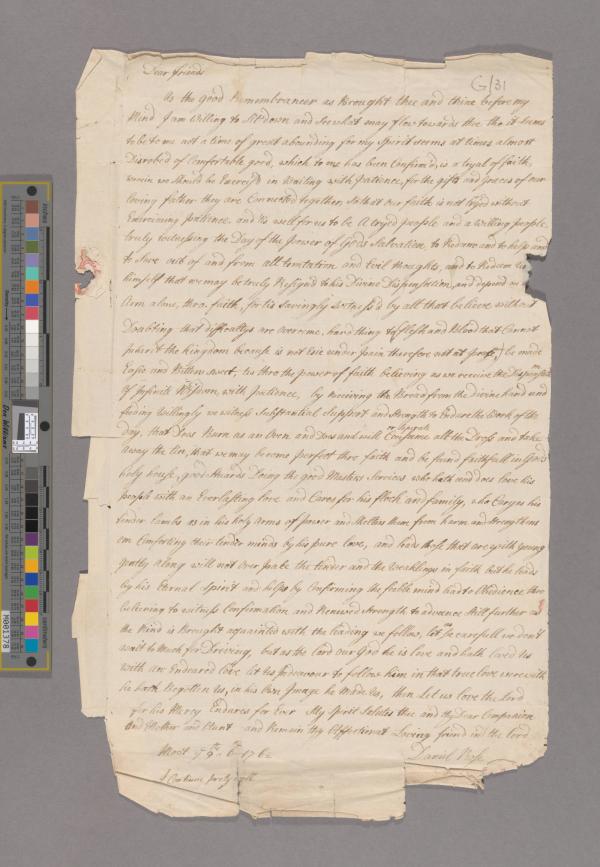 Dear friends
G/31
As the good Remembrancer as Brought thee and thine before my
Mind I am Willing to Sit down and See what may flow towards thee tho it Seems
to be to me not a time of great abounding for my Spirit Seems at times almost
Disrobed of Comfortable good, which to me has been Confirmd, is a tryal of faith,
wherein we Should be Exercisd in Waiting with Patience, for the gifts and graces of our
loving father they are Connected together, So that our faith is not tryed without
Exercising patience, and tis well for us to be A tryed people and a willing people,
truly witnessing the Day of the Power of Gods Salvation, to Redeem and to help and
to Save out of and from all temtation and Evil thoughts, and to Redeem Us
himself that we may be truly Resignd to his Divine Dispensation, and depend on
Arm alone, thro faith, for tis Savingly witness'd by all that believe without
Doubting that difficultys are overcome, hard thing to flesh and Blood that Cannot
inherit the Kingdom because is not under pain therefore be made
Easie and Bitter Sweet, thro the power of faith believing as we receive the
Of Infinite Wisdom, with patience, by receiving the Bread from the divine hand and
feeding willingly we witness Substantial Support and Strength to Endure the Work of the
day, that Does Burn as an Oven and Does and will Consume all the Dross and take
away the tin, that we may become perfect thro faith and be found faithfull in God's
holy house, good Doing the good Masters Services who hath and does love his
people with an Everlasting love and Cares for his flock and family, who Carys his
tender lambs as in his holy Arms of power and Shelters them from harm and Strengthens
em Comforting their tender minds by his pure love, and leads those that are with young
gently along will not over the tender and the Weaklings in faith but he leads
by his Eternal Spirit and helps by Confirming the feeble mind lead to Obedience thro
to witness Confirmation and Renewed Strength to advance Still further as
the Mind is Brought acquainted with the leading we follow, let me be carefull we don't
wait to Much for Driving, but as the lord our God he is love and hath loved us
with an Endeared love let us Endeavour to follow him in that true love wherewith
he hath Begotten Us, in his Own Image he Made Us, then Let us love the Lord
for his Mercy Endures for Ever My Spirit Salutes thee and thy Dear Companion
And Mother and Aunt and Remain thy Affectionat Loving friend in the lord
Daniel Rose